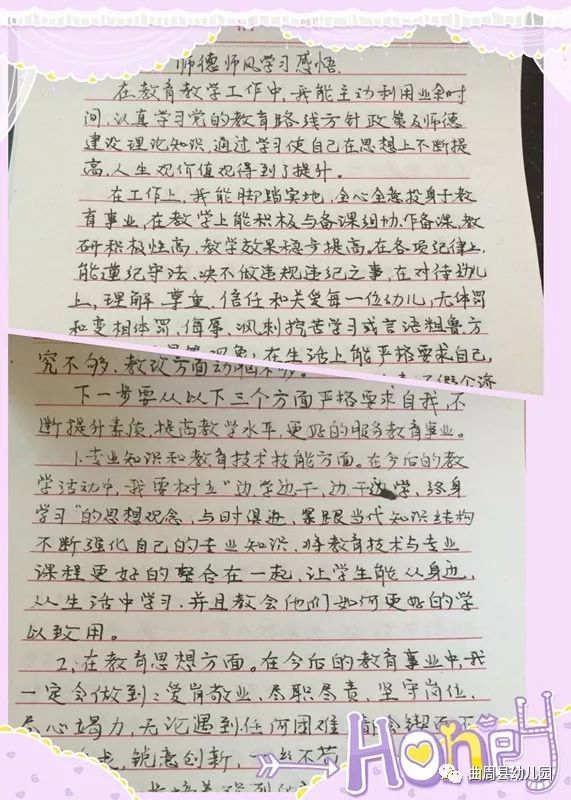 师德师风学习感悟.
在教育教学工作中,我能主动利用业余时
间,认真学习党的教育路线方针政策及师德
建设理论知识,通过学习使自己在思想上不断提
高,人生观价值观得到了提升。
在工作上,我能脚踏实地,全心全意投身于教
育事业,在教学上能积极与备课组协作备课,教
研积极性高,教学效果稳步提高,在各项纪律上,
能遵纪守法,决不做违规违纪之事,在对待幼儿
上,理解、尊重、信任和关爱每一位幼儿,无体罚
和变相体罚、侮辱、讽刺挖苦学习或言语粗鲁方
现象;在生活上能严格要求自己,
究不够,教改方面动脑不够。
下一步要从以下三个方面严格要求自我,不
断提升素质,提高教学水平,更好的服务教育事业。
1.专业知识和教育技术技能方面。在今后的教
学活动中,我要树立"边学边干,边干边学,终身
学习"的思想观念,与时俱进,紧跟当代知识结构
不断强化自己的专业知识,将教育技术与专业
课程更好的整合在一起,让学生能从身边,
从生活中学习,并且教会他们如何更好的学
以致用。
2.在教育思想方面。在今后的教育事业中,我
一定会做到:爱岗敬业、尽职尽责、坚守岗位、
尽心竭力,无论遇到任何困难,都会锲而不
锐意创新,一丝不苟
Honey
曲周县幼儿园